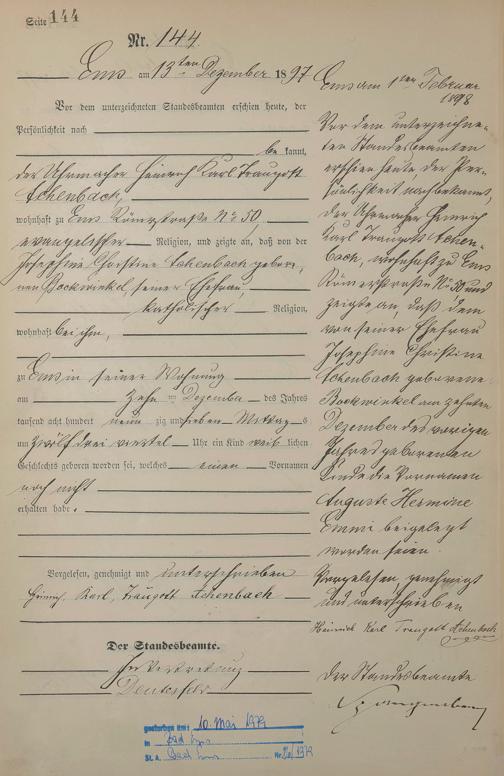 Seite 144
Nr. 144.
Ems am 13ten Dezember 1897
Vor dem unterzeichneten Standesbeamten erschien heute, der
Persönlichkeit nach
be kannt,
der Uhrmacher Heinrich Karl Traugott
Achenbach,
wohnhaft zu Ems Römerstraße No 50,
evangelischer Religion, und zeigte an, daß von der
Josephine Christine Achenbach gebore,
nen Bockwinkel, seiner Ehefrau,
katholischer Religion,
wohnhaft bei ihm,
zu Ems in seiner Wohnung
am zehn ten Dezember des Jahres
tausend acht hundert neun zig und sieben Mittags
um zwölf drei viertel Uhr ein Kind weib lichen
Geschlechts geboren worden sei, welches einen Vornamen
noch nicht
erhalten habe.
Vorgelesen, genehmigt und unterschrieben
Heinrich Karl Traugott Achenbach
Der Standesbeamte.
In Vertretung
Ems am 1ten Februar
1898
Vor dem unterzeichne-
ten Standesbeamten
erschien heute, der Per-
sönlichkeit nach bekannt,
der Uhrmacher Heinrich
Karl Traugott Achen-
bach, wohnhaft zu Ems
Römerstraße No 50 und
zeigte an, daß dem
von seiner Ehefrau
Josephine Christine
Achenbach geborene
Bockwinkel am zehnten
Dezember des vorigen
Jahres geborenen
Kinde die Vornamen
Auguste Hermine
Emmi beigelegt
worden seien.
Vorgelesen, genehmigt
und unterschrieben
Heinrich Karl Traugott Achenbach
Der Standesbeamte
gestorben am: 10. Mai 1979
in Bad Ems
St. A. Bad Ems Nr. /1979